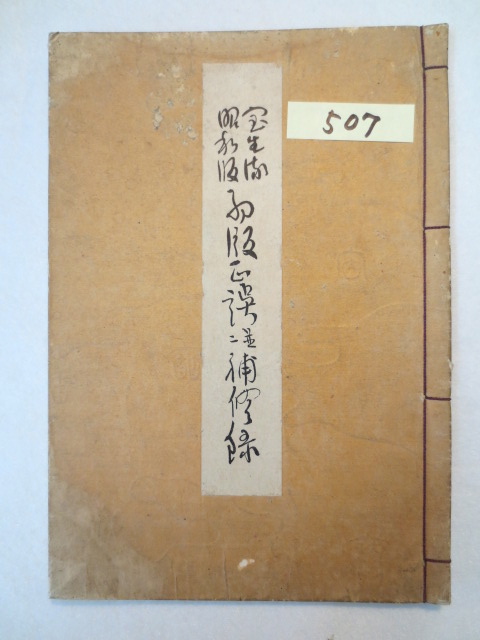 宝生流
昭和版
初版正誤並ニ補修録
507